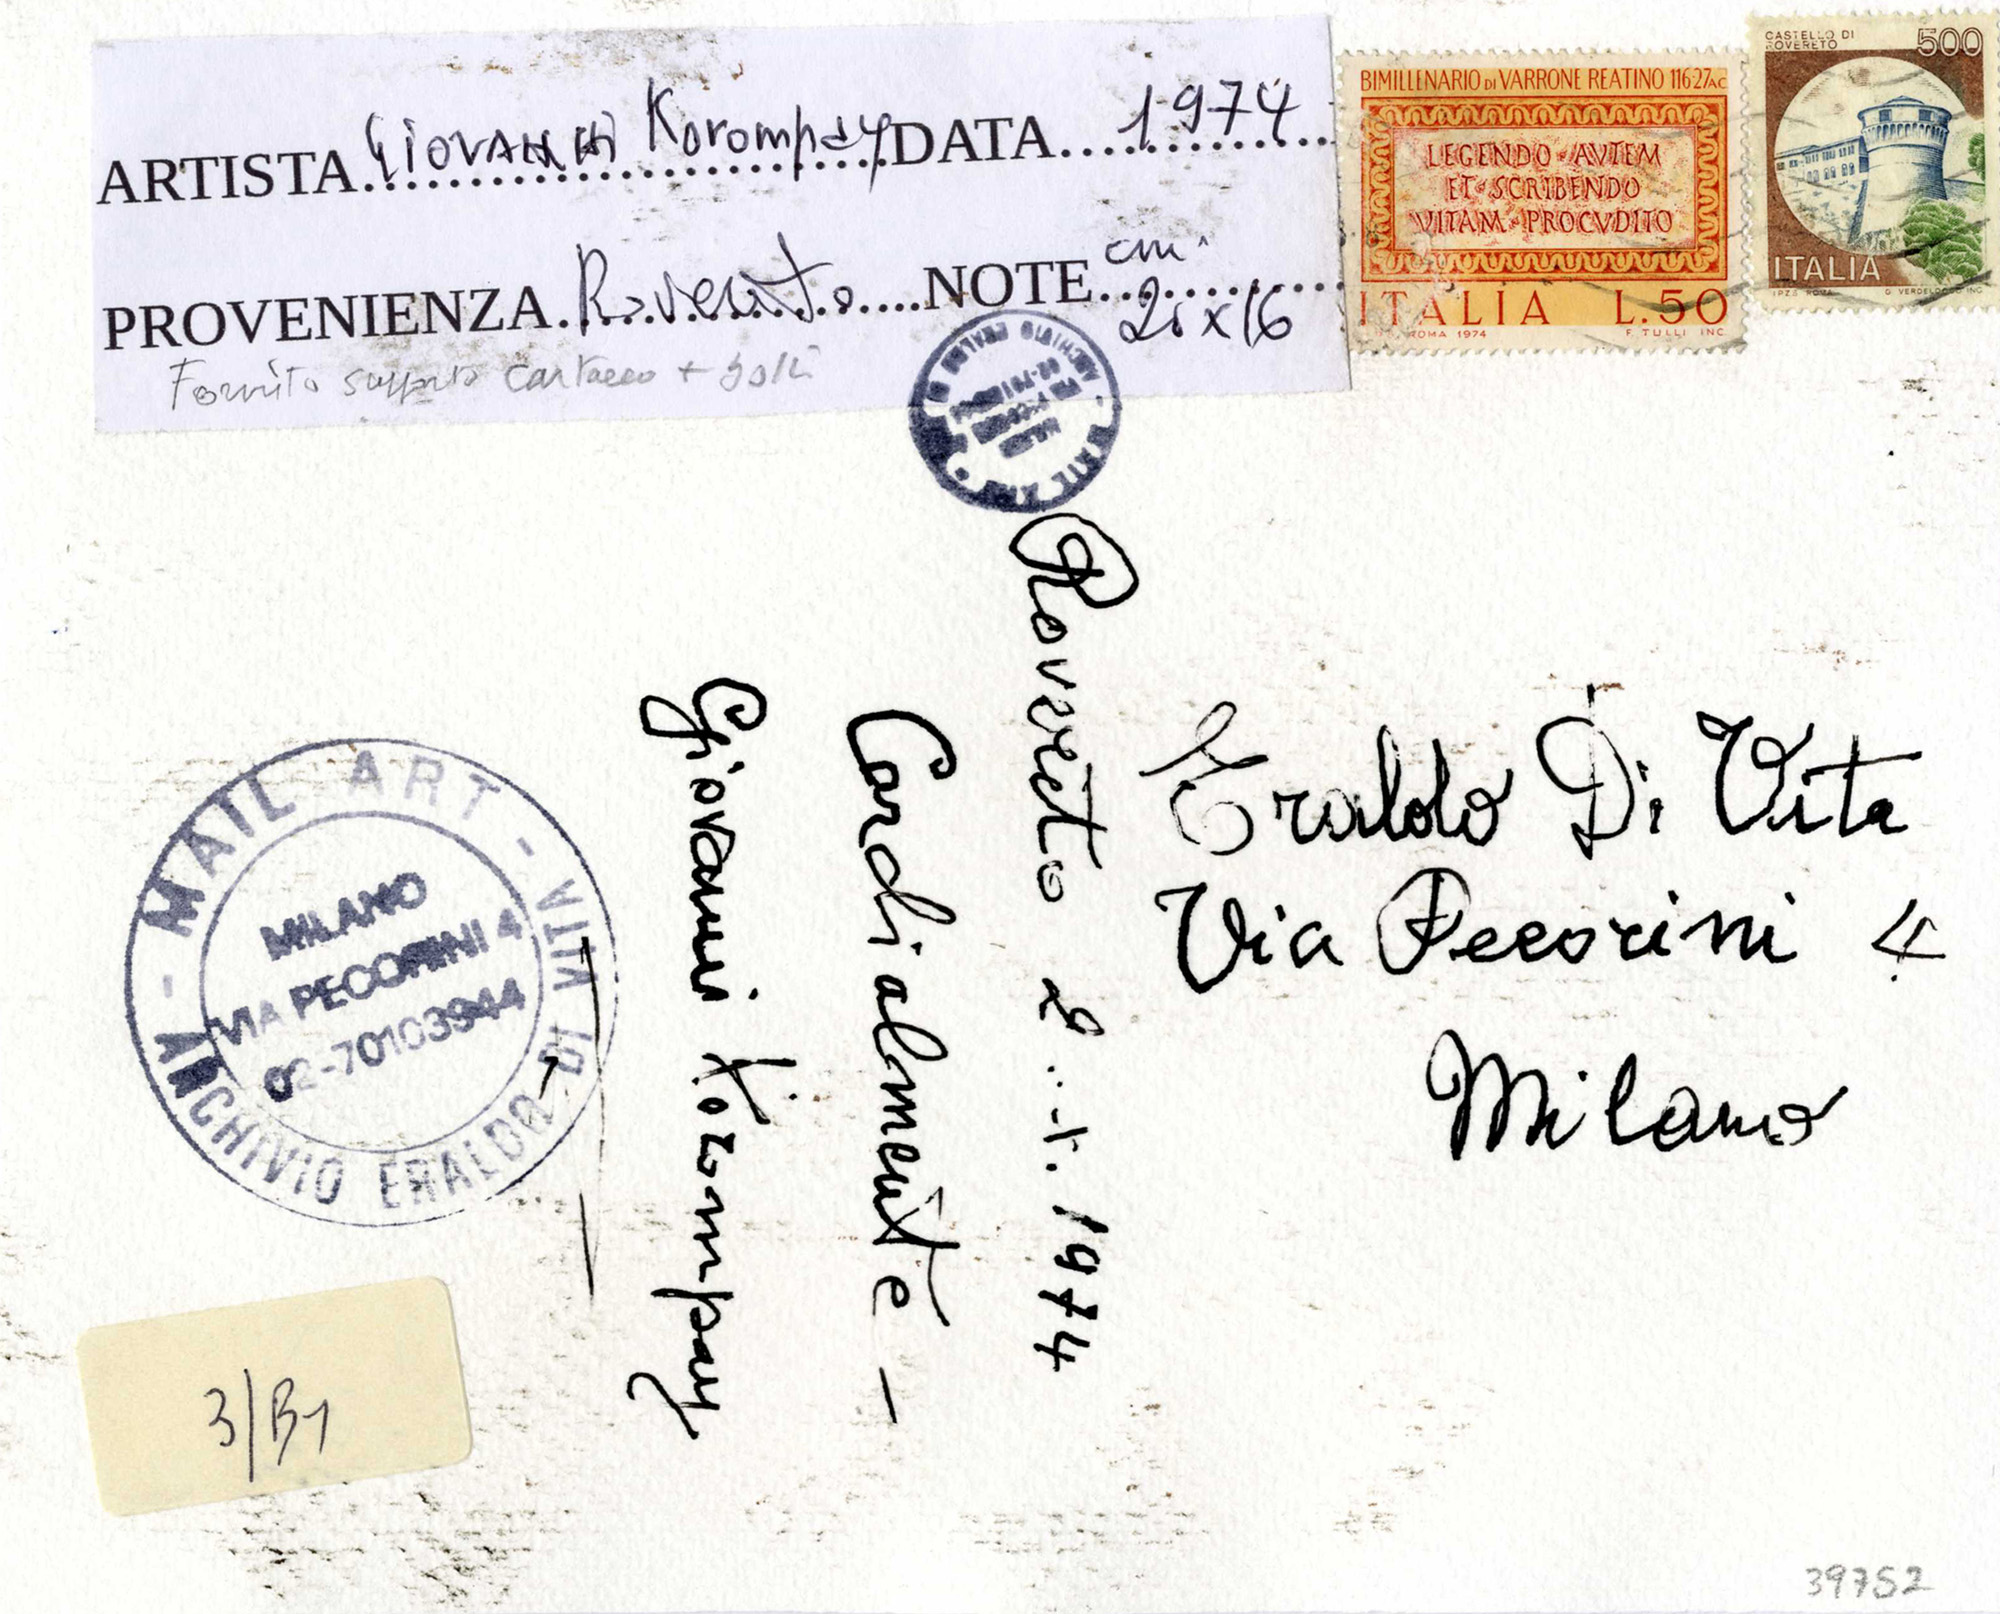 ARTISTA Giovanni Korompay DATA 1974
PROVENIENZA Rovereto NOTE cm
16
Fornito supporto cartaceo + bolli
BIMILLENARIO DI VARRONE REATINO 116-27 AC
LEGENDO · AVTEM
ET · SCRIBENDO
VITAM · PROCVDITO
ITALIA L.50
ROMA 1974 F. TULLI INC.
CASTELLO DI
ROVERETO
500
ITALIA
I.P.Z.S. ROMA G. VERDELOCCO INC.
Rovereto 2 .. 1974
Cordialmente -
Giovanni Korompay
Eraldo Di Vita
Via Pecorini 4
Milano
- MAIL ART - ARCHIVIO ERALDO DI VITA
MILANO
VIA PECORINI 4
02-70103944
3/B1
39752